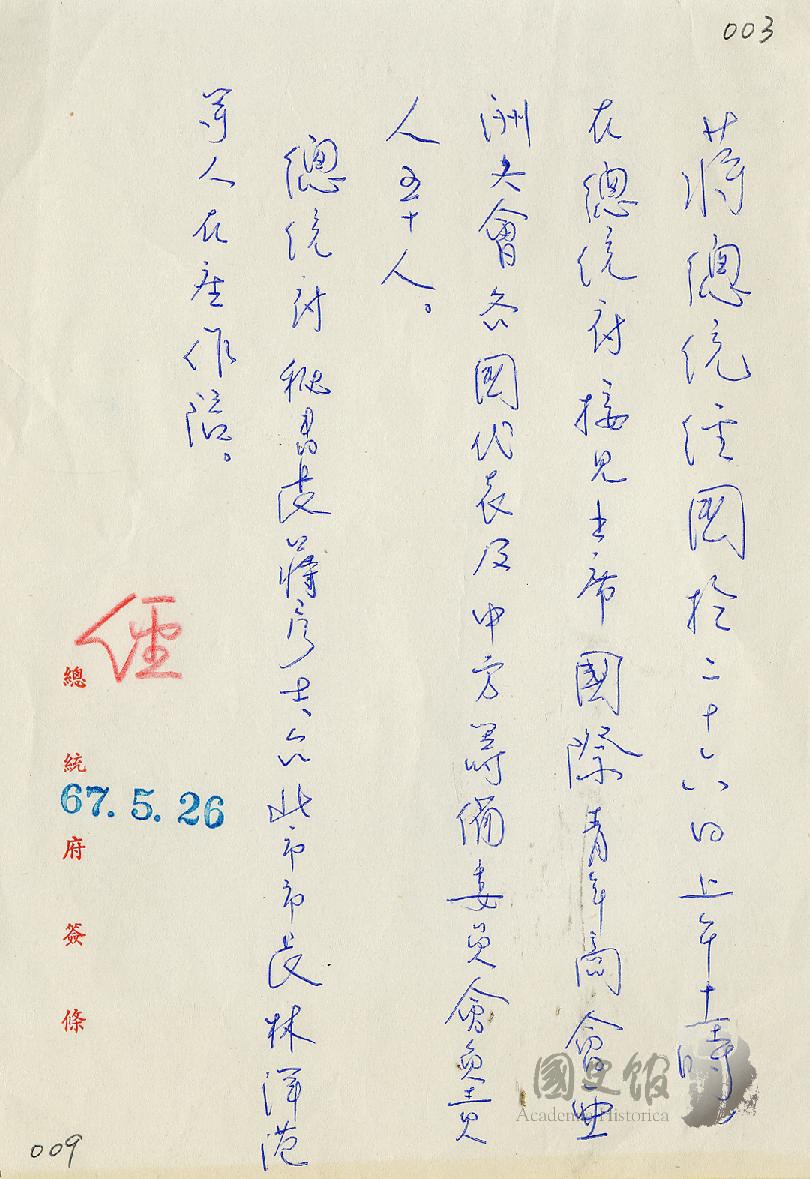 003
蔣總統經國於二十六日上午十一時,
在總統府接見出席國際青年商會亞
洲大會各國代表及中方籌備委員會負責
人五十人。
總統府秘書長蔣彥士、台北市市長林洋港
等人在座作陪。
經
總統府簽條
67. 5. 26
國史館
Academia Historica
009